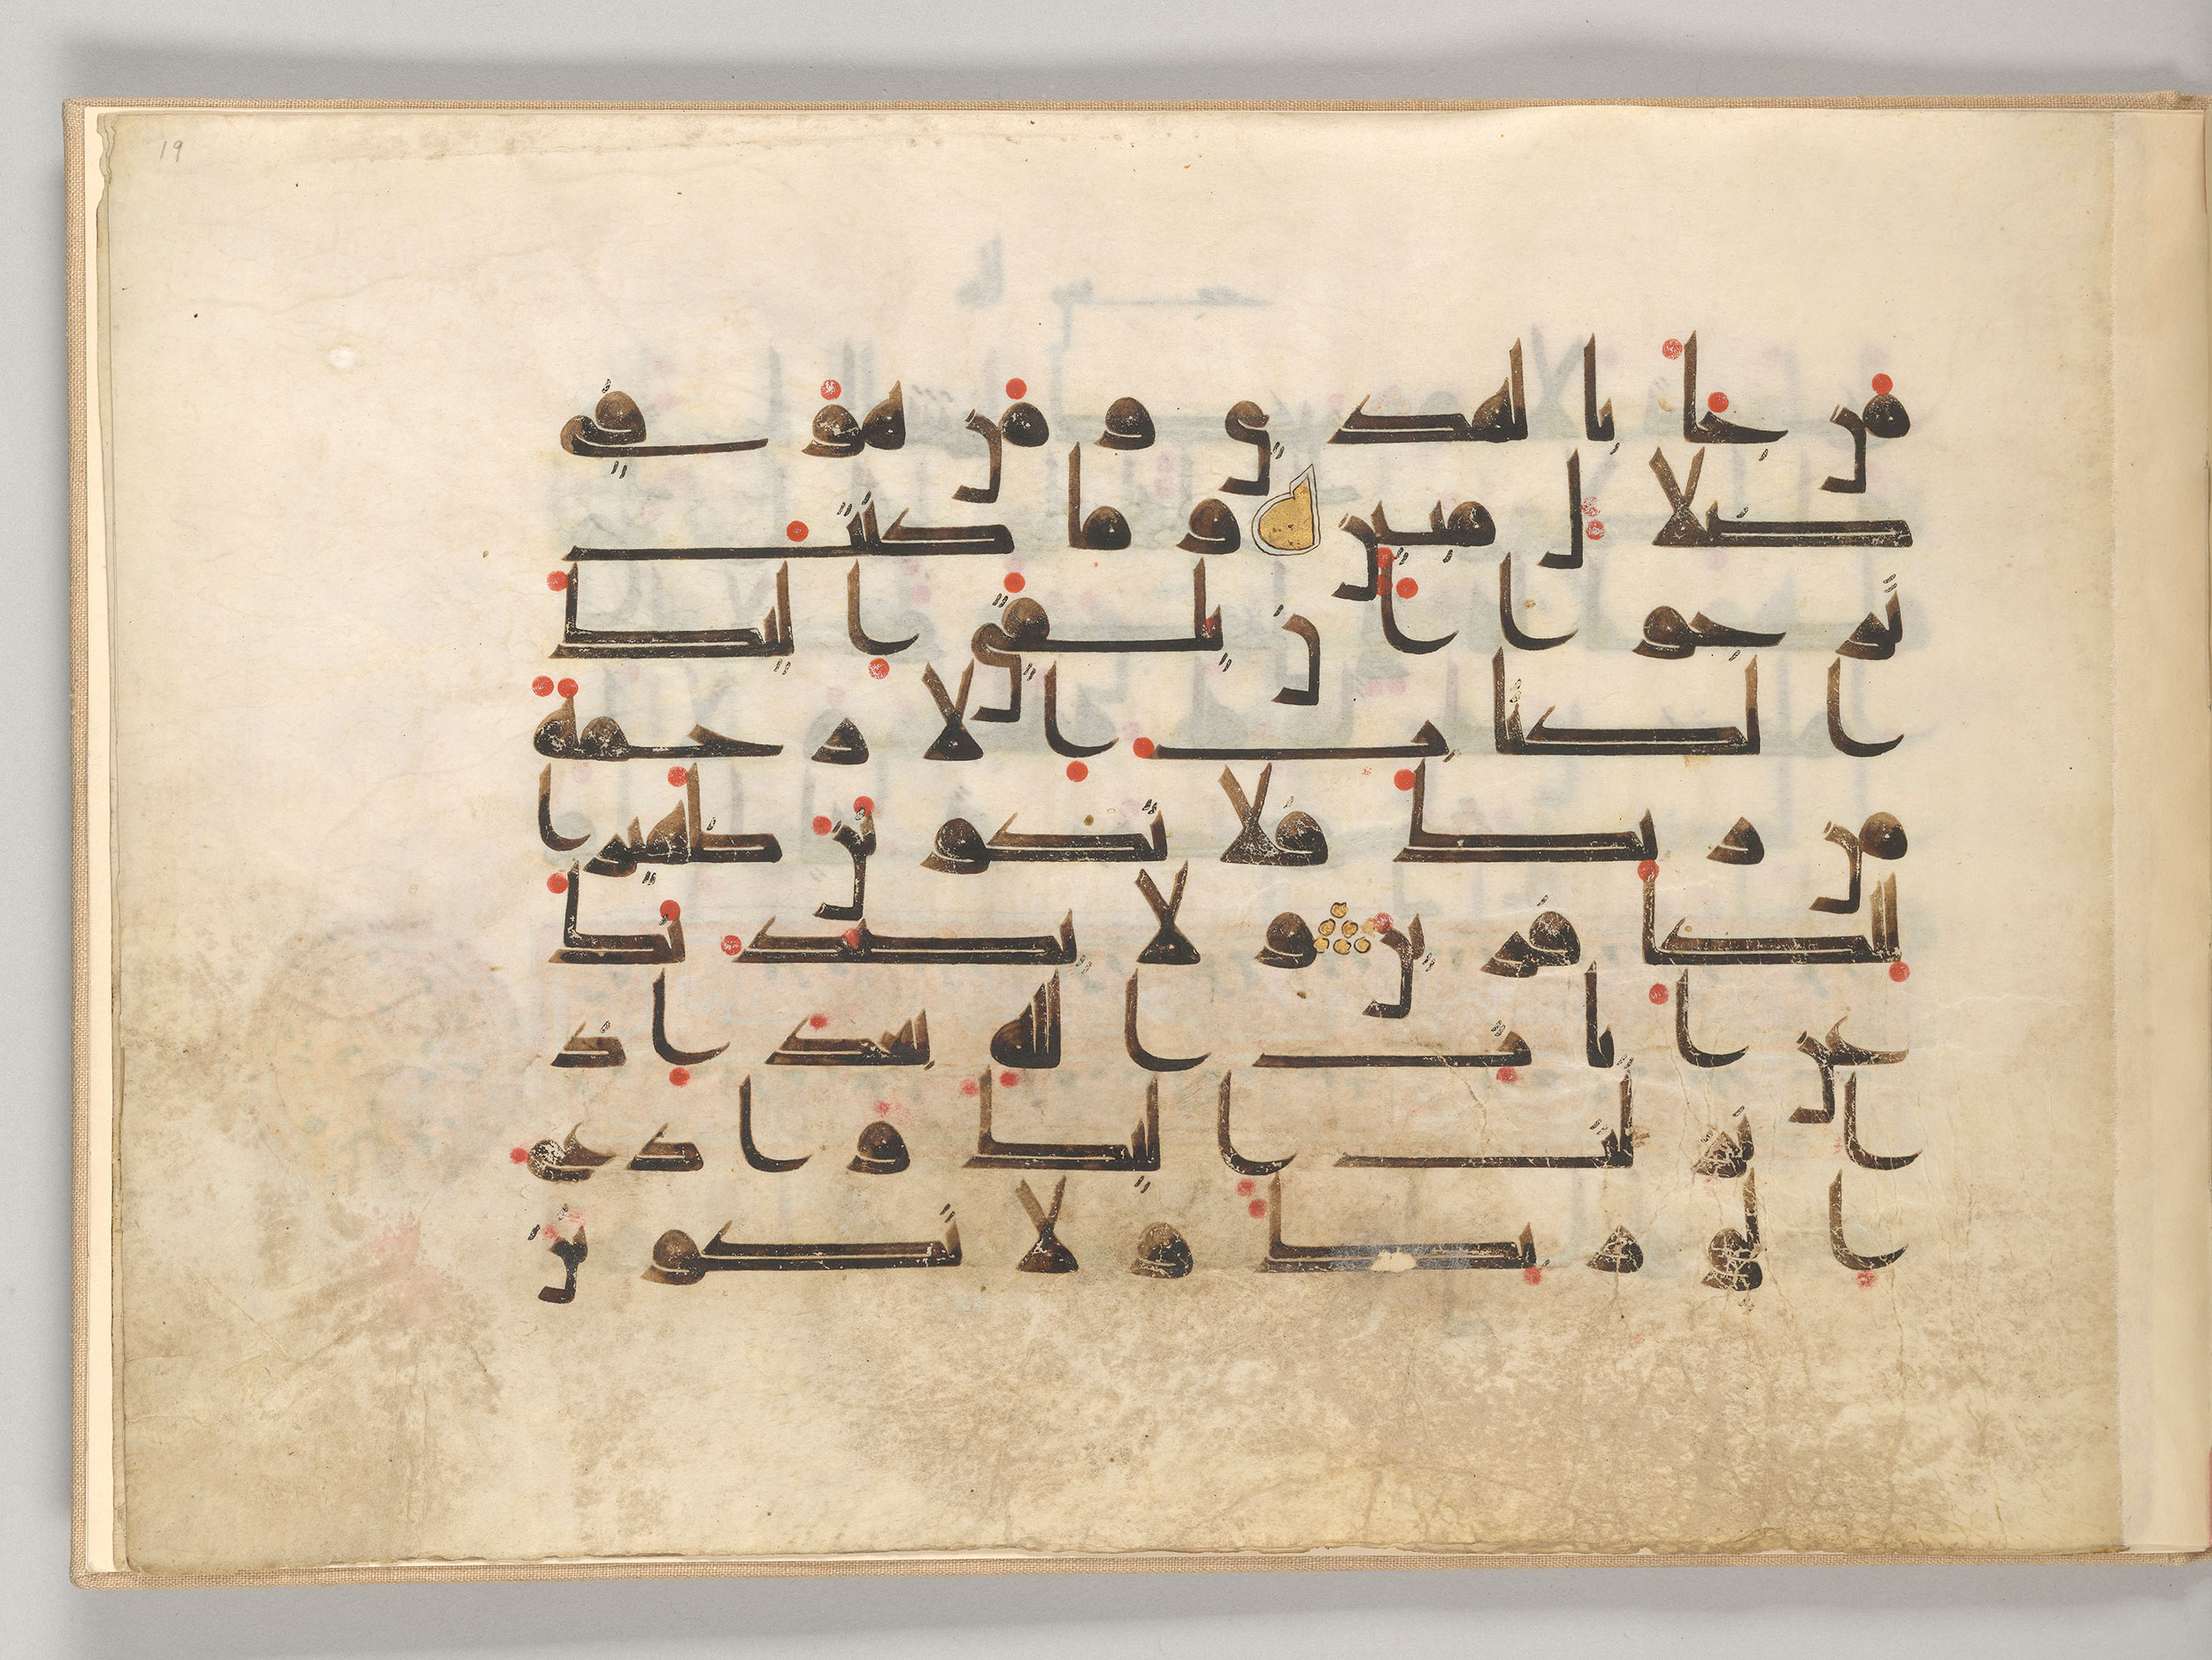 19
من جا بالهدى ومن هو في
ضلال مبين وما كنت
ترجوا ان يلقى اليك
الكتاب الا رحمة
من ربك فلا تكونن ظهيرا
للكافرين ولا يصدنك
عن ايات الله بعد اذ
انزلت اليك وادع
الى ربك ولا تكونن